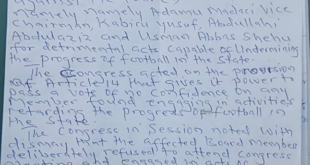 against the
namely namely, Adamu Madaci Vice
Chairman, Kabiru Yusuf, Abdullahi
Abdulaziz and Usman Abbas Shehu
for detrimental acts capable of undermining
the progress of football in the State.
The Congress acted on the provision
of Article that gives it power to
pass a vote of no confidence on any
Member found engaging in activities
retarding the progress of football in
the State.
The Congress in Session noted with
dismay that the affected Board Members
deliberately refused to attend congress
and engaged in